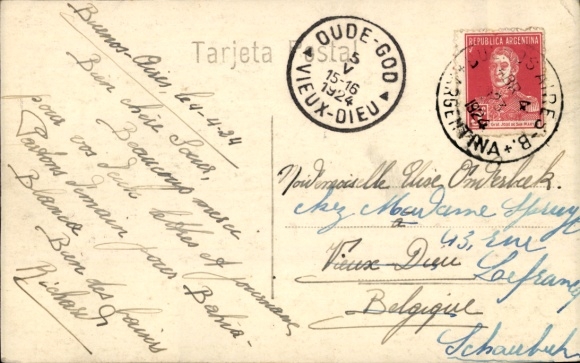 Tarjeta Postal
Buenos-Aires, le 4-4-24
Bien chère Soeur,
Beaucoup merci
pour vos deux lettres et journaux
Partons demain pour Bahia-
Blanca Bien des baisers
Richard
OUDE-GOD
5
V
15-16
1924
VIEUX-DIEU
REPUBLICA ARGENTINA
BUENOS AIRES
4
1924
ARGENTINA
Mademoiselle Elise
chez Madame
à 43, rue
Vieux-Dieu Lefranc
Belgique
Schaerbeek